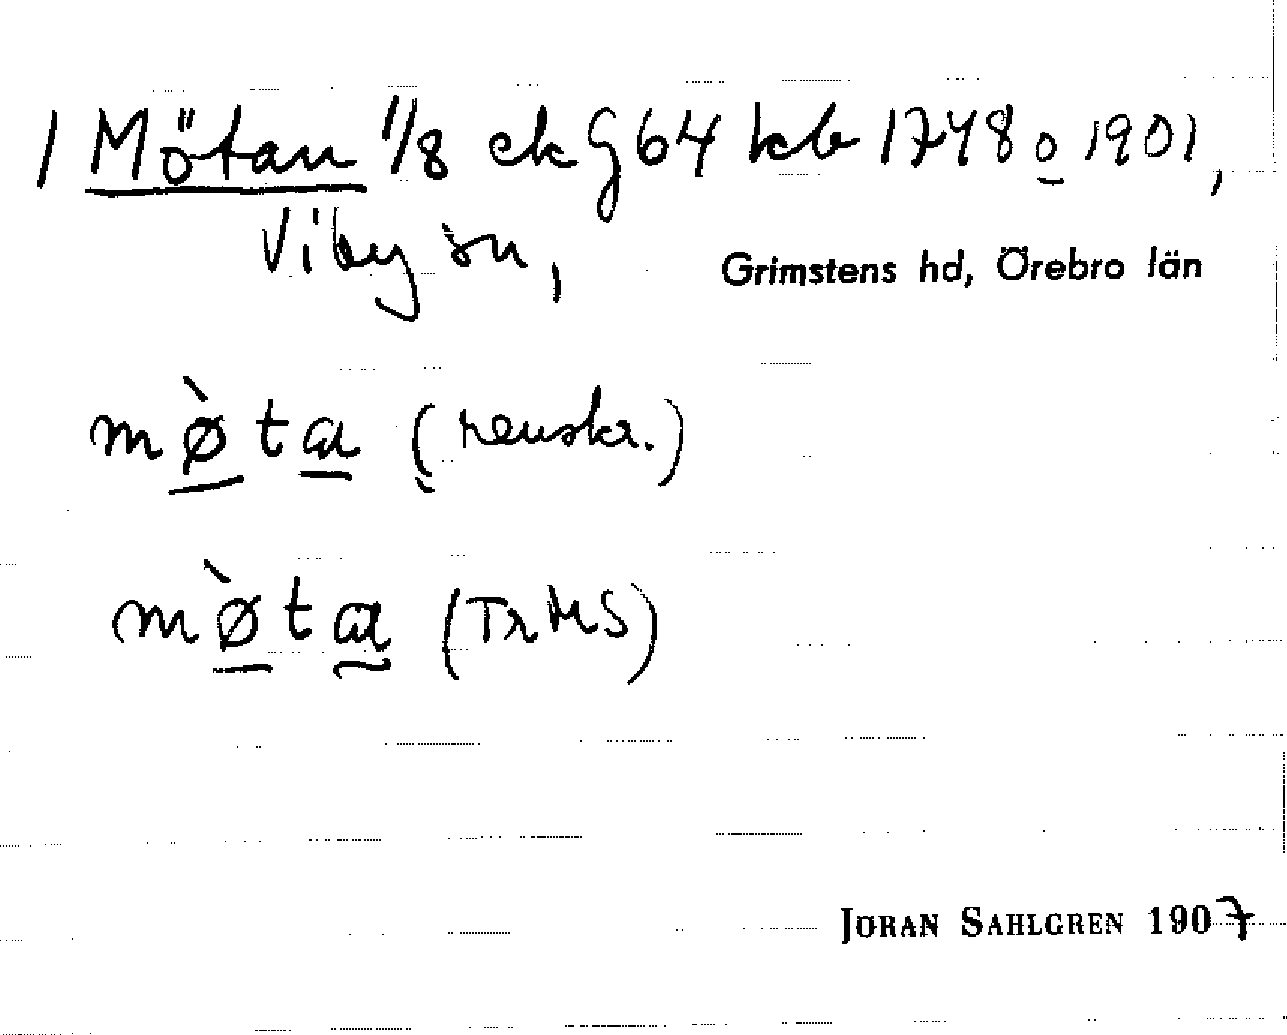 1 Mötan 1/8 ek G 64 kb 1748 o 1901,
Viby sn,
Grimstens hd, Örebro län
mø̀ta (renskr.)
mø̀ta (Tr MS)
JÖRAN SAHLGREN 1907